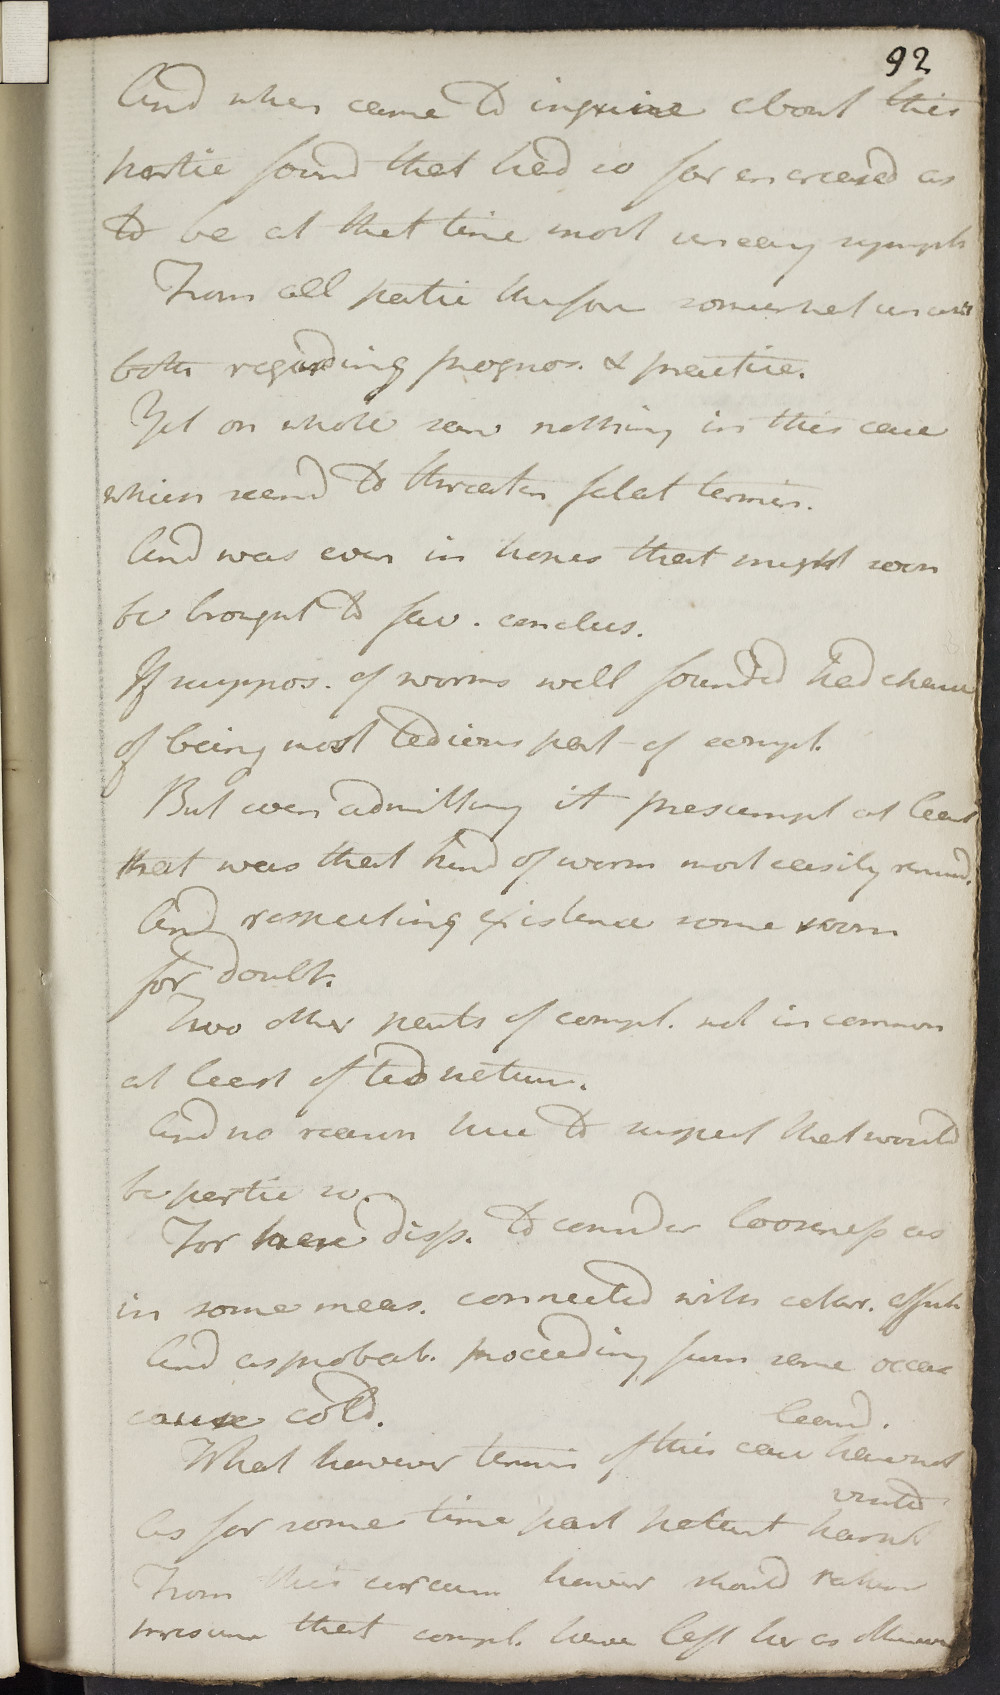 92
And when came to inquire about this
partic found that had so far encreased as
to be at that time most uneasy symph
From all partic therfore somewhat uncert
both regarding prognos. & practice.
Yet on whole saw nothing in this case
which seemd to threaten fatal termin.
And was even in hopes that might soon
be brought to fav. conclus.
If suppos. of worms well founded had chance
of being most tedious part of compl.
But even admitting it presumpt at least
that was that kind of worm most easily remvd.
And respecting existence some room
for doubt.
Two other parts of compl. not in common
at least of ted nature.
And no reason here to suspect that would
be partic so.
For here disp. to consider looseness as
in some meas. connected with catarr. affect
And as probab. proceeding from same occas
cause cold.
What however termin of this case have not
learnd.
As for some time past patient hasnt
visited
From this circum however should rather
presume that compl. have left her as otherwise